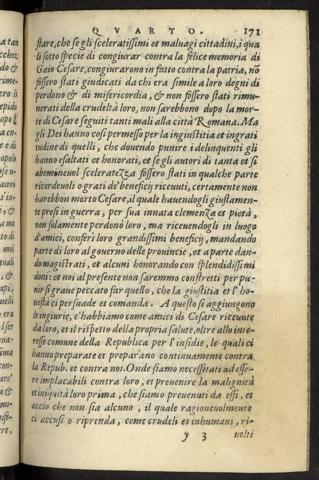 QVARTO. 171
stare, che se gli sceleratissimi et maluagi cittadini, i qua
li sotto specie di congiurar contra la felice memoria di
Gaio Cesare, congiurarono in fatto contra la patria, nõ
fossero stati giudicati da chi era simile a loro degni di
perdono & di misericordia, & non fossero stati rimu-
nerati della crudeltà loro, non sarebbono dopo la mor-
te di Cesare seguiti tanti mali alla città Romana. Ma
gli Dei hanno così permesso per la ingiustitia et ingrati
tudine di quelli, che douendo punire i delinquenti gli
hanno esaltati et honorati, et se gli autori di tanta et sì
abomineuol sceleratezza fossero stati in qualche parte
ricordeuoli o grati de' beneficij riceuuti, certamente non
harebbon morto Cesare, il quale hauendogli giustamen-
te presi in guerra, per sua innata clemenza et pietà,
non solamente perdonò loro, ma riceuendogli in luogo
d'amici, conferì loro grandissimi beneficij, mandando
parte di loro al gouerno delle prouincie, et a parte dan-
do magistrati, et alcuni honorando con splendidissimi
doni: et noi al presente non saremmo constretti per pu-
nir sì graue peccato far quello, che la giustitia et l'ho-
nestà ci persuade et comanda. A questo si aggiungono
le ingiurie, c'habbiamo come amici di Cesare riceuute
da loro, et il rispetto della propria salute, oltre allo inte-
resse comune della Republica per l'insidie, le quali ci
hanno preparate et preparano continuamente contra
la Repub. et contra noi. Onde siamo necessitati ad esse-
re implacabili contra loro, et preuenire la malignità
et iniquità loro prima, che siamo preuenuti da essi, et
accio che non sia alcuno, il quale ragioneuolmente
ci accusi o riprenda, come crudeli et inhumani, ri-
y 3 uolti